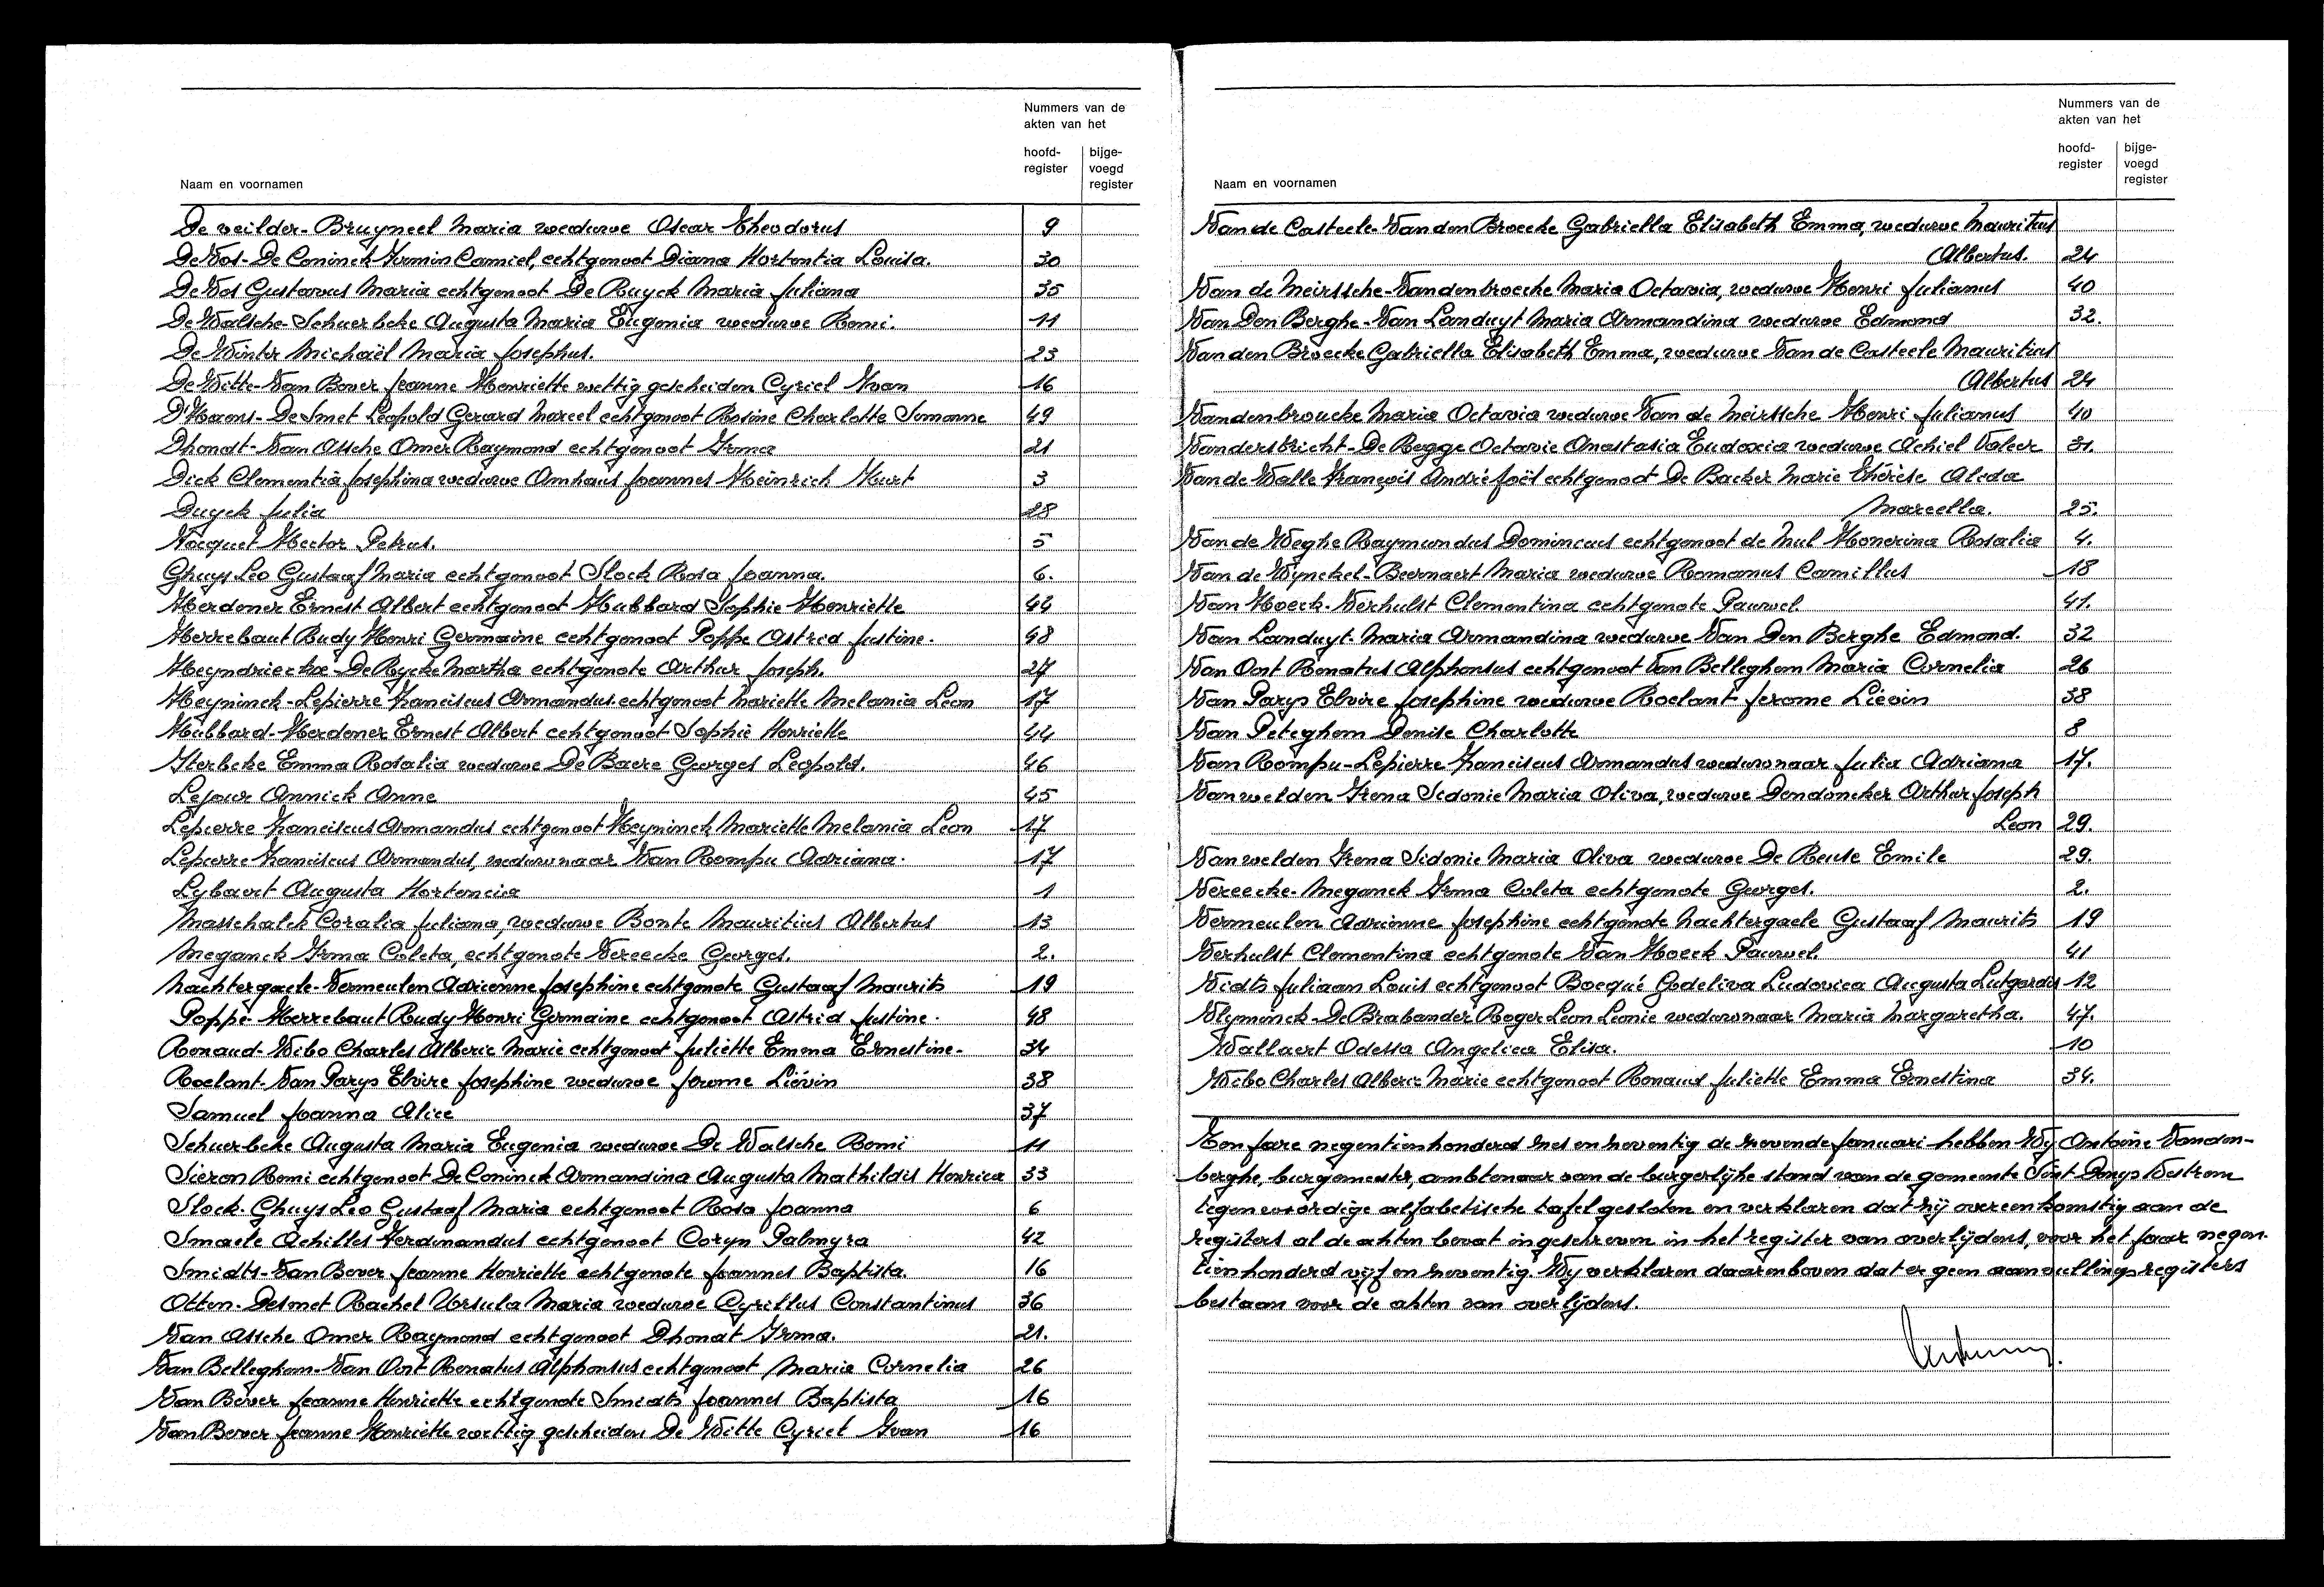 Nummers van de
akten van het
hoofd-
register
bijge-
voegd
register
Naam en voornamen
De veilder-Bruyneel Maria weduwe Oscar Theodorus 9
De Vos-De Coninck Firmin Camiel, echtgenoot Diana Hortentia Louisa. 30
De Vos Gustavus Maria echtgenoot De Ruyck Maria Juliana 35
De Walsche-Schuerbeke Augusta Maria Eugenia weduwe Remi. 11
De Winter Michaël Maria Josephus. 23
De Witte-Van Bever Jeanne Henriette wettig gescheiden Cyriel Yvan 16
D'Haens-De Smet Léopold Gerard Marcel echtgenoot Rosine Charlotte Simonne 49
Dhondt-Van Assche Omer Raymond echtgenoot Irma 21
Dick Clementia Josephina weduwe Amhaus Joannes Heinrich Kurt 3
Duyck Julia 28
Focquet Hector Petrus. 5
Ghuys Leo Gustaaf Maria echtgenoot Slock Rosa Joanna. 6.
Herdener Ernest Albert echtgenoot Hubbard Sophie Henriette 44
Herrebaut Rudy Henri Germaine echtgenoot Poppe Astrid Justine. 48
Heyndrieckx-De Rycke Martha echtgenote Arthur Joseph. 27
Heyninck-Lepierre Franciscus Armandus echtgenoot Mariette Melania Leon 17
Hubbard-Herdener Ernest Albert echtgenoot Sophie Henriette 44
Iterbeke Emma Rosalia weduwe De Baere Georges Leopold. 46
Lejour Annick Anne 45
Lepierre Franciscus Armandus echtgenoot Heyninck Mariette Melania Leon 17
Lepierre Franciscus Armandus, weduwnaar Van Rompu Adriana. 17
Lybaert Augusta Hortencia 1
Masschalck Coralia Juliana, weduwe Bonte Mauritius Albertus 13
Meganck Irma Coleta, echtgenote Vereecke Georges. 2.
Nachtergaele-Vermeulen Adrienne Josephine echtgenote Gustaaf Maurits 19
Poppe-Herrebaut Rudy Henri Germaine echtgenoot Astrid Justine. 48
Renaud-Wibo Charles Alberic Marie echtgenoot Juliette Emma Ernestine. 34
Roelant-Van Parys Elvire Josephine weduwe Jerome Liévin 38
Samuel Joanna Alice 37
Schuerbeke Augusta Maria Eugenia weduwe De Walsche Remi 11
Sieron Remi echtgenoot De Coninck Armandina Augusta Mathildis Henrica 33
Slock-Ghuys Leo Gustaaf Maria echtgenoot Rosa Joanna 6
Smaele Achilles Ferdinandus echtgenoot Coryn Palmyra 42
Smidts-Van Bever Jeanne Henriette echtgenote Joannes Baptista. 16
Otten-Desmet Rachel Ursula Maria weduwe Cyrillus Constantinus 36
Van Assche Omer Raymond echtgenoot Dhondt Irma. 21.
Van Belleghem-Van Oost Renatus Alphonsus echtgenoot Maria Cornelia 26
Van Bever Jeanne Henriette echtgenote Smidts Joannes Baptista 16
Van Bever Jeanne Henriette wettig gescheiden De Witte Cyriel Yvan 16
Nummers van de
akten van het
hoofd-
register
bijge-
voegd
register
Naam en voornamen
Van de Casteele-Van den Broecke Gabriella Elisabeth Emma, weduwe Mauritius
Albertus. 24
Van de Meirssche-Vandenbroecke Maria Octavia, weduwe Henri Julianus 40
Van Den Berghe-Van Landuyt Maria Armandina weduwe Edmond 32.
Van den Broecke Gabriella Elisabeth Emma, weduwe Van de Casteele Mauritius
Albertus 24
Vandenbroucke Maria Octavia weduwe Van de Meirssche Henri Julianus 40
Vanderstricht-De Regge Octavie Anastasia Eudoxia weduwe Achiel Valeer 31.
Van de Walle François André Joël echtgenoot De Backer Marie Thérèse Aleda
Marcella. 25.
Van de Weghe Raymundus Domincus echtgenoot de Mul Honorina Rosalia 4.
Van de Wynckel-Beernaert Maria weduwe Romanus Camillus 18
Van Hoeck-Verhulst Clementina echtgenote Pauwel. 41.
Van Landuyt Maria Armandina weduwe Van Den Berghe Edmond. 32
Van Oost Renatus Alphonsus echtgenoot Van Belleghem Maria Cornelia 26
Van Parys Elvire Josephine weduwe Roelant Jerome Liévin 38
Van Peteghem Denise Charlotte 8
Van Rompu-Lepierre Franciscus Armandus weduwnaar Julia Adriana 17.
Van welden Irena Sidonie Maria Oliva, weduwe Dendoncker Arthur Joseph
Leon 29.
Van welden Irena Sidonie Maria Oliva weduwe De Reuse Emile 29.
Vereecke-Meganck Irma Coleta echtgenote Georges. 2.
Vermeulen Adrienne Josephine echtgenote Nachtergaele Gustaaf Maurits 19
Verhulst Clementina echtgenote Van Hoeck Pauwel. 41
Vidts Juliaan Louis echtgenoot Bocqué Godeliva Ludovica Augusta Lutgardis 12
Vlyminck-De Brabander Roger Leon Leonie weduwnaar Maria Margaretha. 47.
Wallaert Odessa Angelica Elisa. 10
Wibo Charles Alberic Marie echtgenoot Renaud Juliette Emma Ernestina 34.
Ten jare negentienhonderd zes en neventig de zevende januari hebben Wij Antoine Vanden-
berghe, burgemeester, ambtenaar van de burgerlijke stand van de gemeente Sint-Denys Westrem
tegenwoordige alfabetische tafel gesloten en verklaren dat zij overeenkomstig aan de
registers al de akten bevat ingeschreven in het register van overlijdens, voor het jaar negen-
tienhonderd vijf en zeventig. Wij verklaren daarenboven dat er geen aanvullingsregisters
bestaan voor de akten van overlijdens.